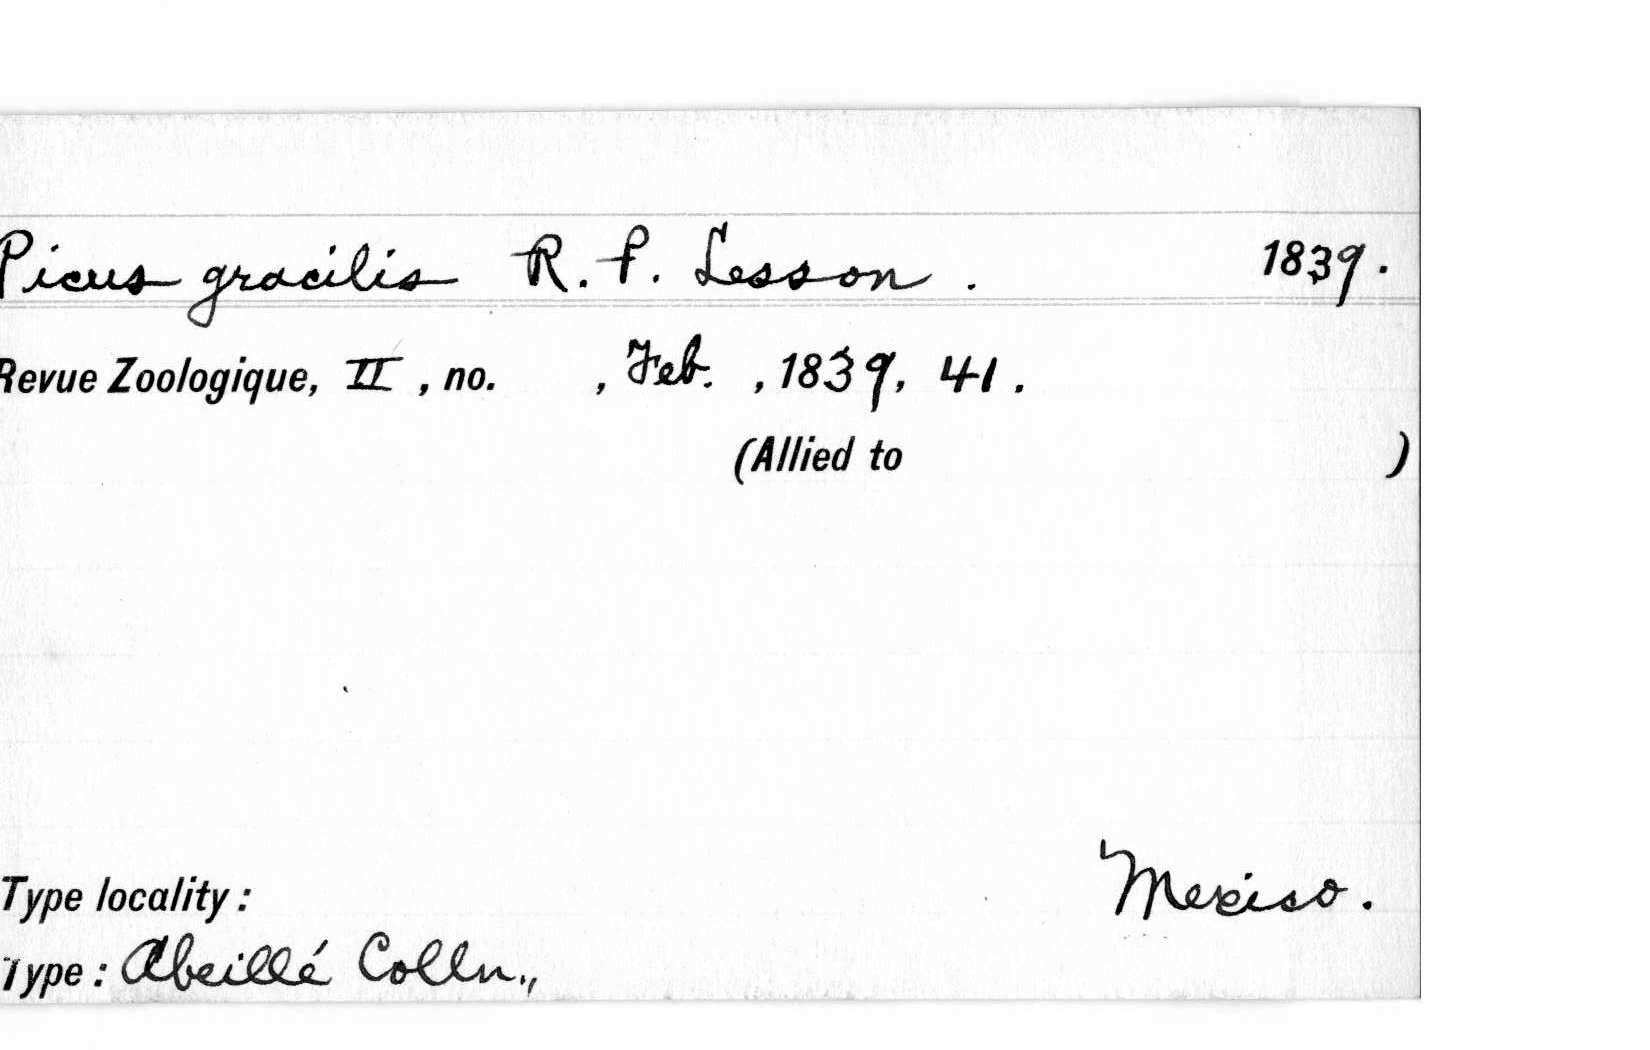 Picus gracilis R. P. Lesson. 1839.
Revue Zoologique, II, no. , Feb. , 1839, 41.
(Allied to )
Type locality: Mexico.
Type: Abeillé Colln.,